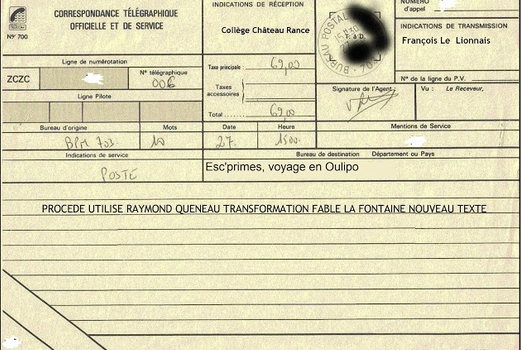 CORRESPONDANCE TÉLÉGRAPHIQUE
OFFICIELLE ET DE SERVICE
N° 700
INDICATIONS DE RÉCEPTION
Collège Château Rance
BUREAU POSTAL
NUMÉRO
d'appel
INDICATIONS DE TRANSMISSION
François Le Lionnais
Ligne de numérotation
ZCZC
N° télégraphique
006
Taxe principale
69,00
Taxes
accessoires
Total
69,00
N° de la ligne du P.V.
Signature de l'Agent
Vu : Le Receveur,
Ligne Pilote
Bureau d'origine
Mots
Date
Heure
Mentions de Service
BPM 703
10
27.
1500.
Indications de service
Bureau de destination Département ou Pays
POSTE
Esc'primes, voyage en Oulipo
PROCEDE UTILISE RAYMOND QUENEAU TRANSFORMATION FABLE LA FONTAINE NOUVEAU TEXTE